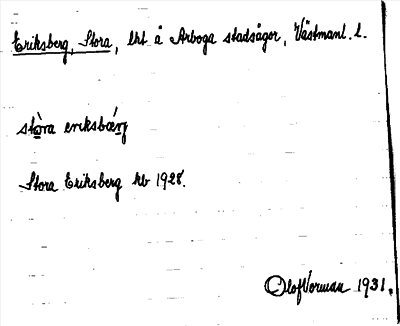 Eriksberg, Stora, lht å Arboga stadsägor, Västmanl. l.
stòra eriksbærj
Stora Eriksberg kb 1928.
Olof Vorman 1931.